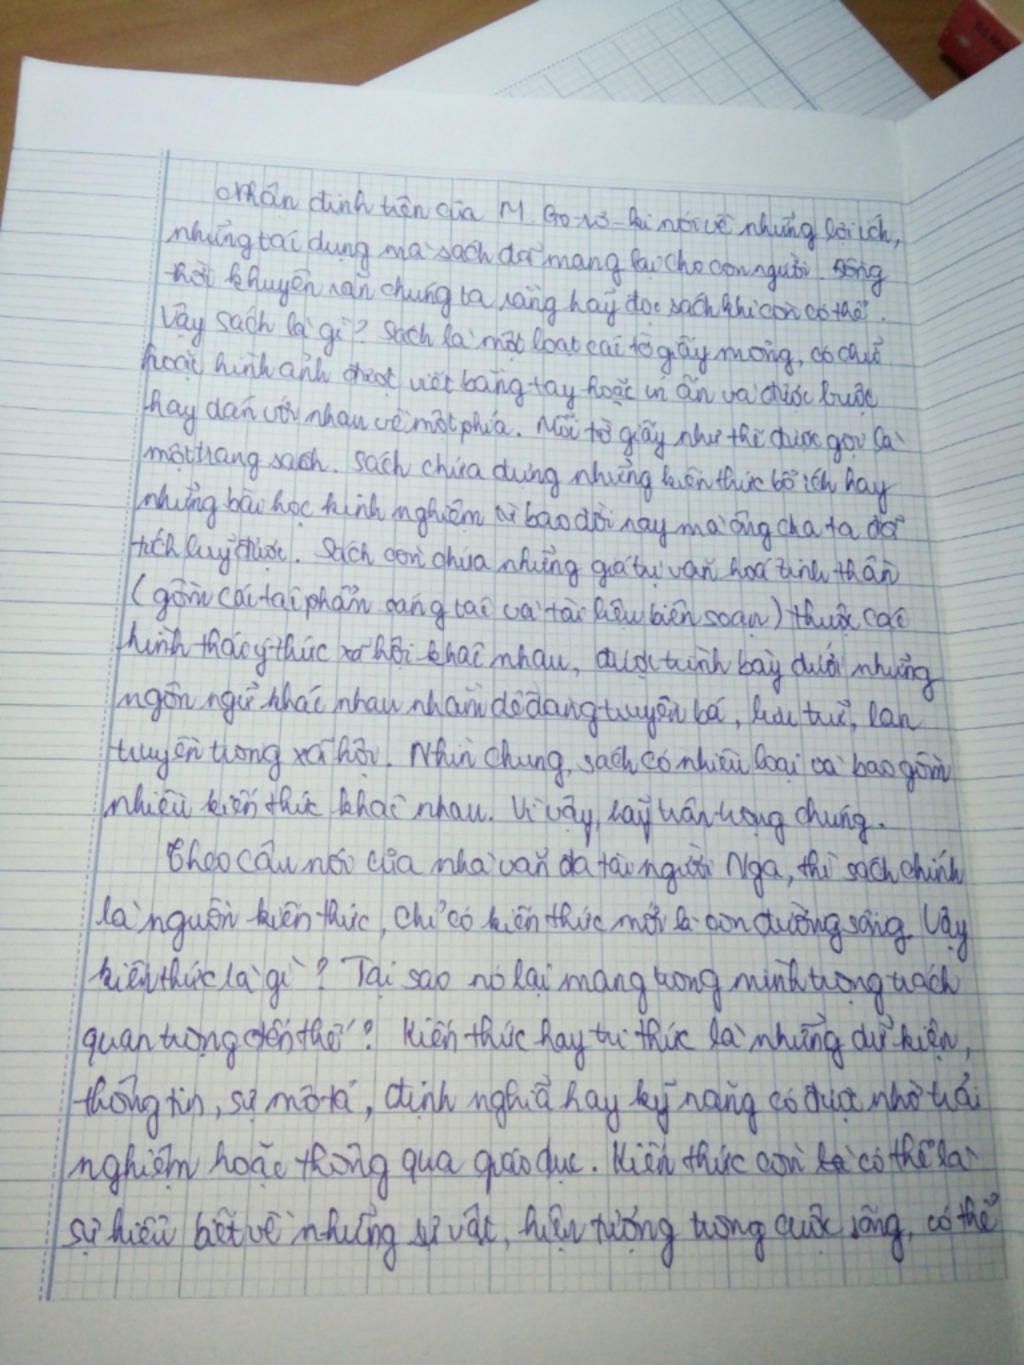 Nhân định trên của M. Go-rơ-ki nói về những lợi ích,
những tác dụng mà sách đã mang lại cho con người. Đồng
thời khuyên răn chúng ta rằng hãy đọc sách khi còn có thể.
Vậy sách là gì? Sách là một loạt các tờ giấy mỏng, có chữ
hoặc hình ảnh được viết bằng tay hoặc in ấn và được buộc
hay dán với nhau về một phía. Mỗi tờ giấy như thế được gọi là
một trang sách. Sách chứa đựng những kiến thức bổ ích hay
những bài học kinh nghiệm từ bao đời nay mà ông cha ta đã
tích luỹ được. Sách còn chứa những giá trị văn hoá tinh thần
(gồm các tác phẩm sáng tác và tài liệu biên soạn) thuộc các
hình thái ý thức xã hội khác nhau, được trình bày dưới những
ngôn ngữ khác nhau nhằm dễ dàng truyền bá, lưu trữ, lan
truyền trong xã hội. Nhìn chung, sách có nhiều loại và bao gồm
nhiều kiến thức khác nhau. Vì vậy, hãy trân trọng chúng.
Theo câu nói của nhà văn đa tài người Nga, thì sách chính
là nguồn kiến thức, chỉ có kiến thức mới là con đường sống. Vậy
kiến thức là gì? Tại sao nó lại mang trong mình trọng trách
quan trọng đến thế? Kiến thức hay tri thức là những dữ kiện,
thông tin, sự mô tả, định nghĩa hay kỹ năng có được nhờ trải
nghiệm hoặc thông qua giáo dục. Kiến thức còn có thể là
sự hiểu biết về những sự vật, hiện tượng trong cuộc sống, có thể